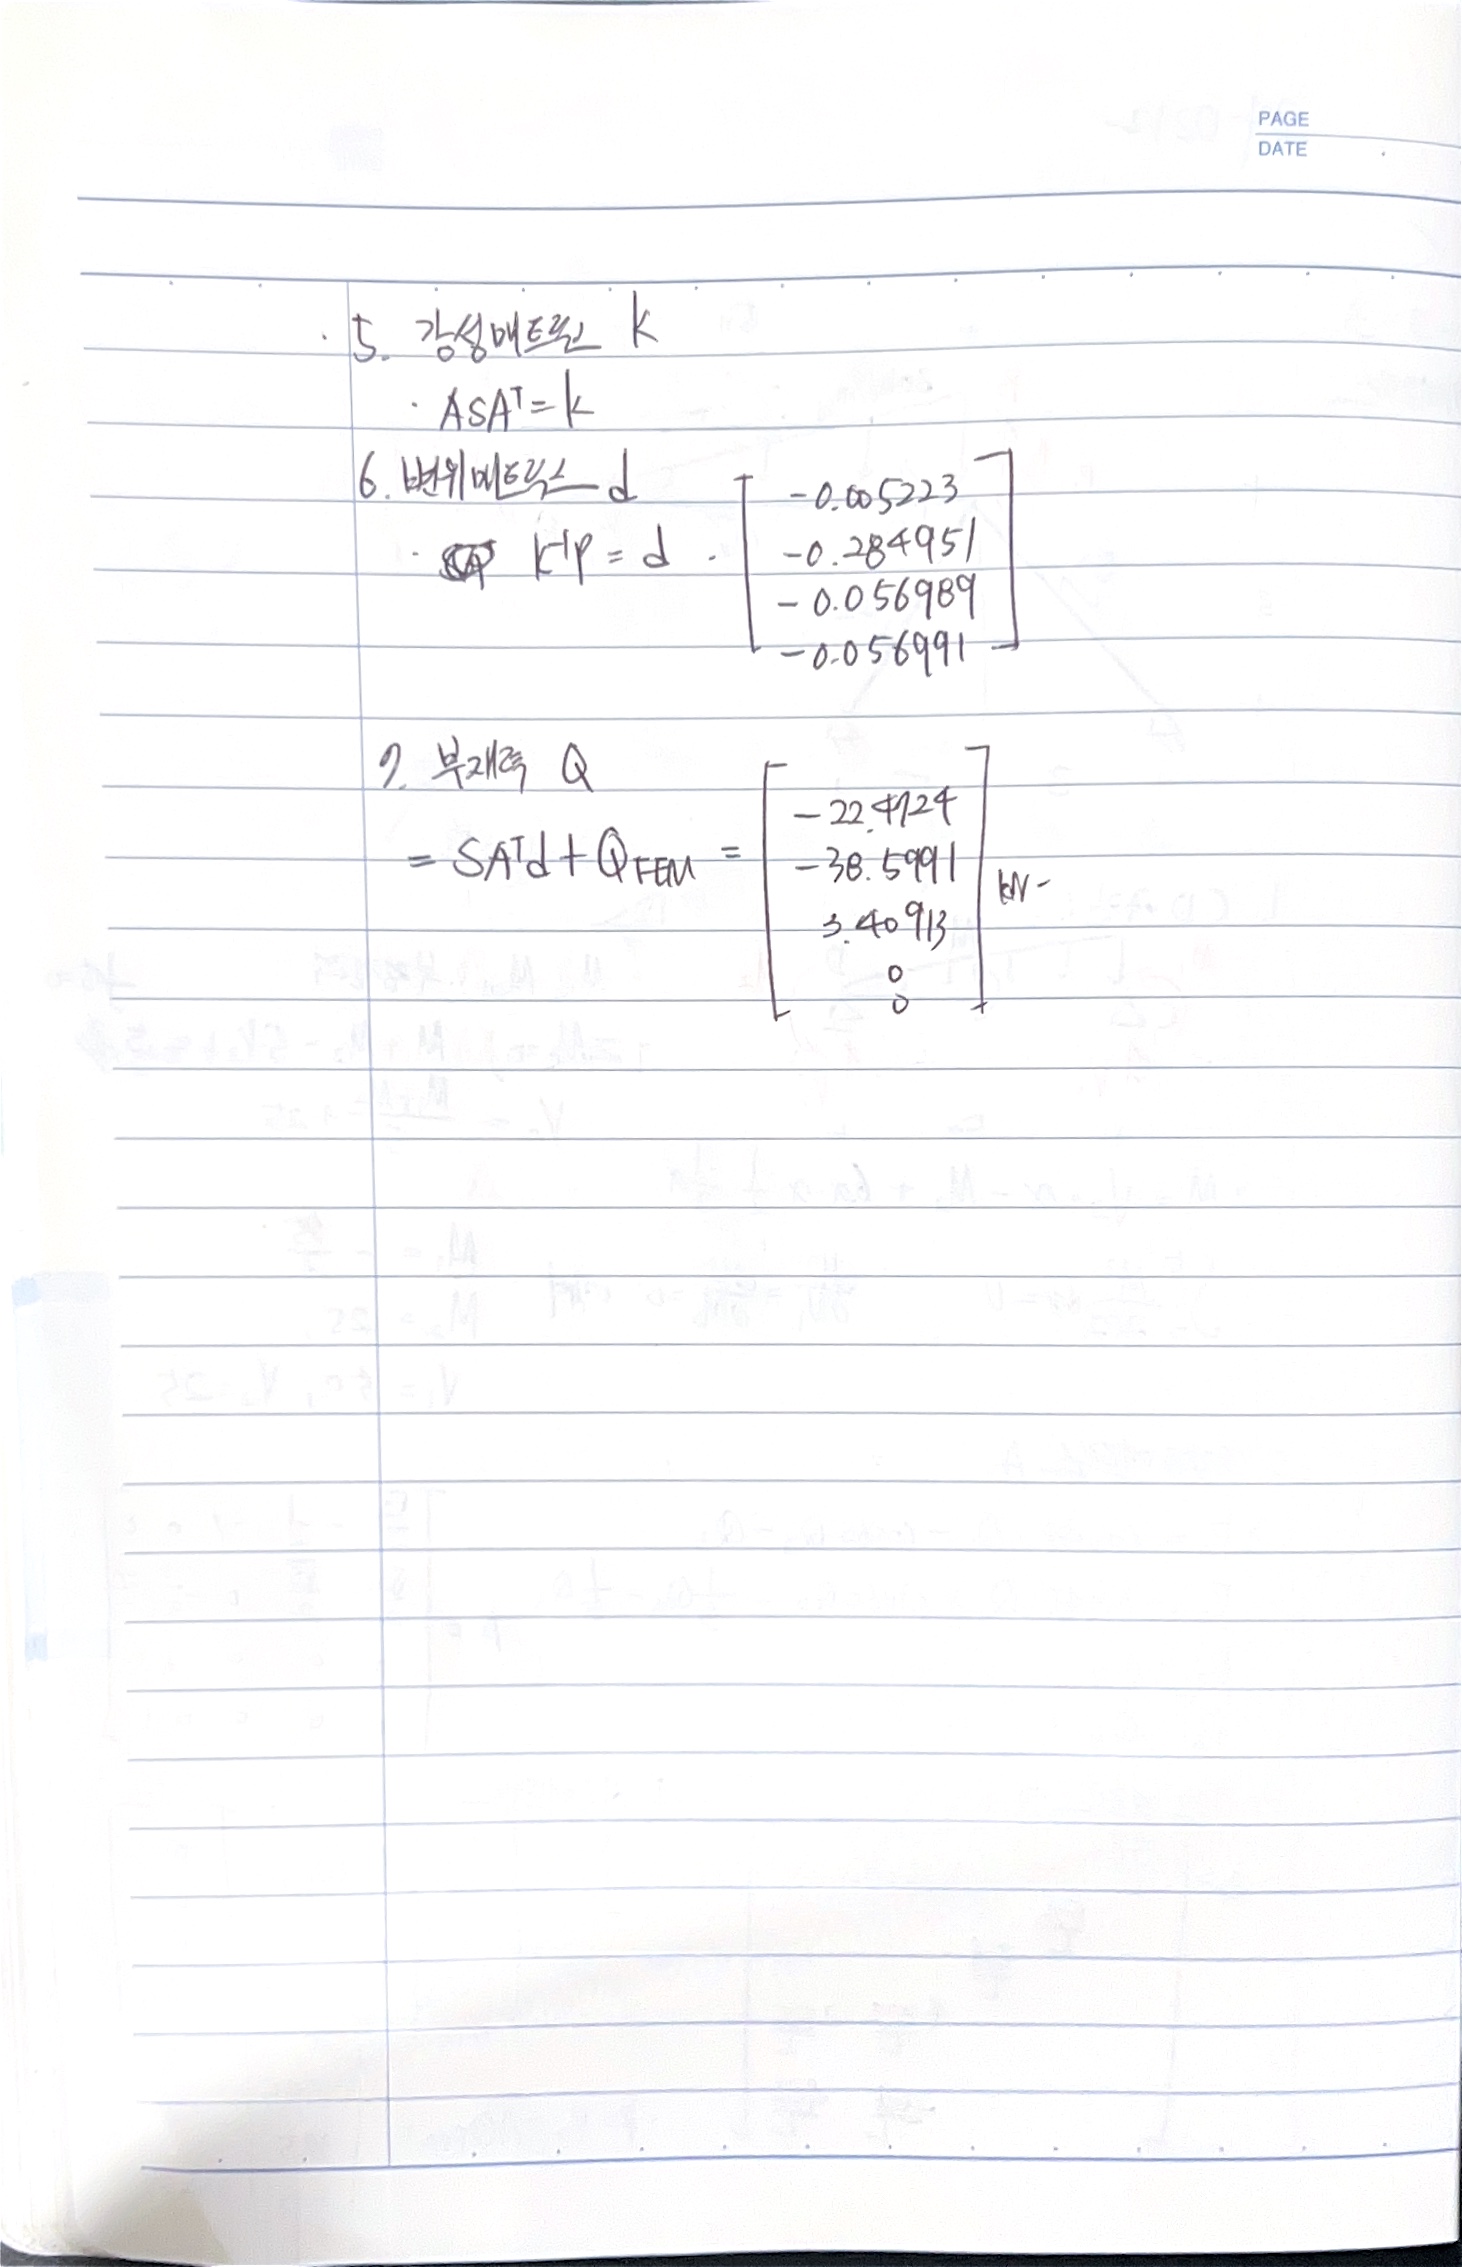 PAGE
DATE
5. 강성매트릭스 k
· ASAᵀ = k
6. 변위매트릭스 d
· K⁻¹P = d ·
-0.005223
-0.284951
-0.056989
-0.056991
7. 부재력 Q
= SAᵀd + Q FEM =
-22.4724
-38.5991
3.40913
0
0
kN-